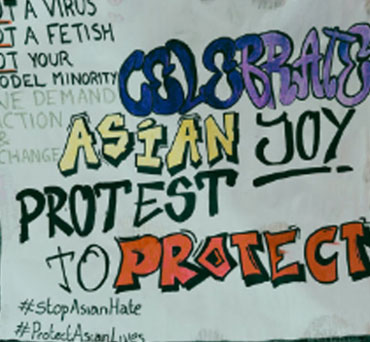 OT A VIRUS
OT A FETISH
OT YOUR
ODEL MINORITY
WE DEMAND
ACTION
&
CHANGE
CELEBRATE
ASIAN JOY
PROTEST
TO PROTECT
#StopAsianHate
#ProtectAsianLives